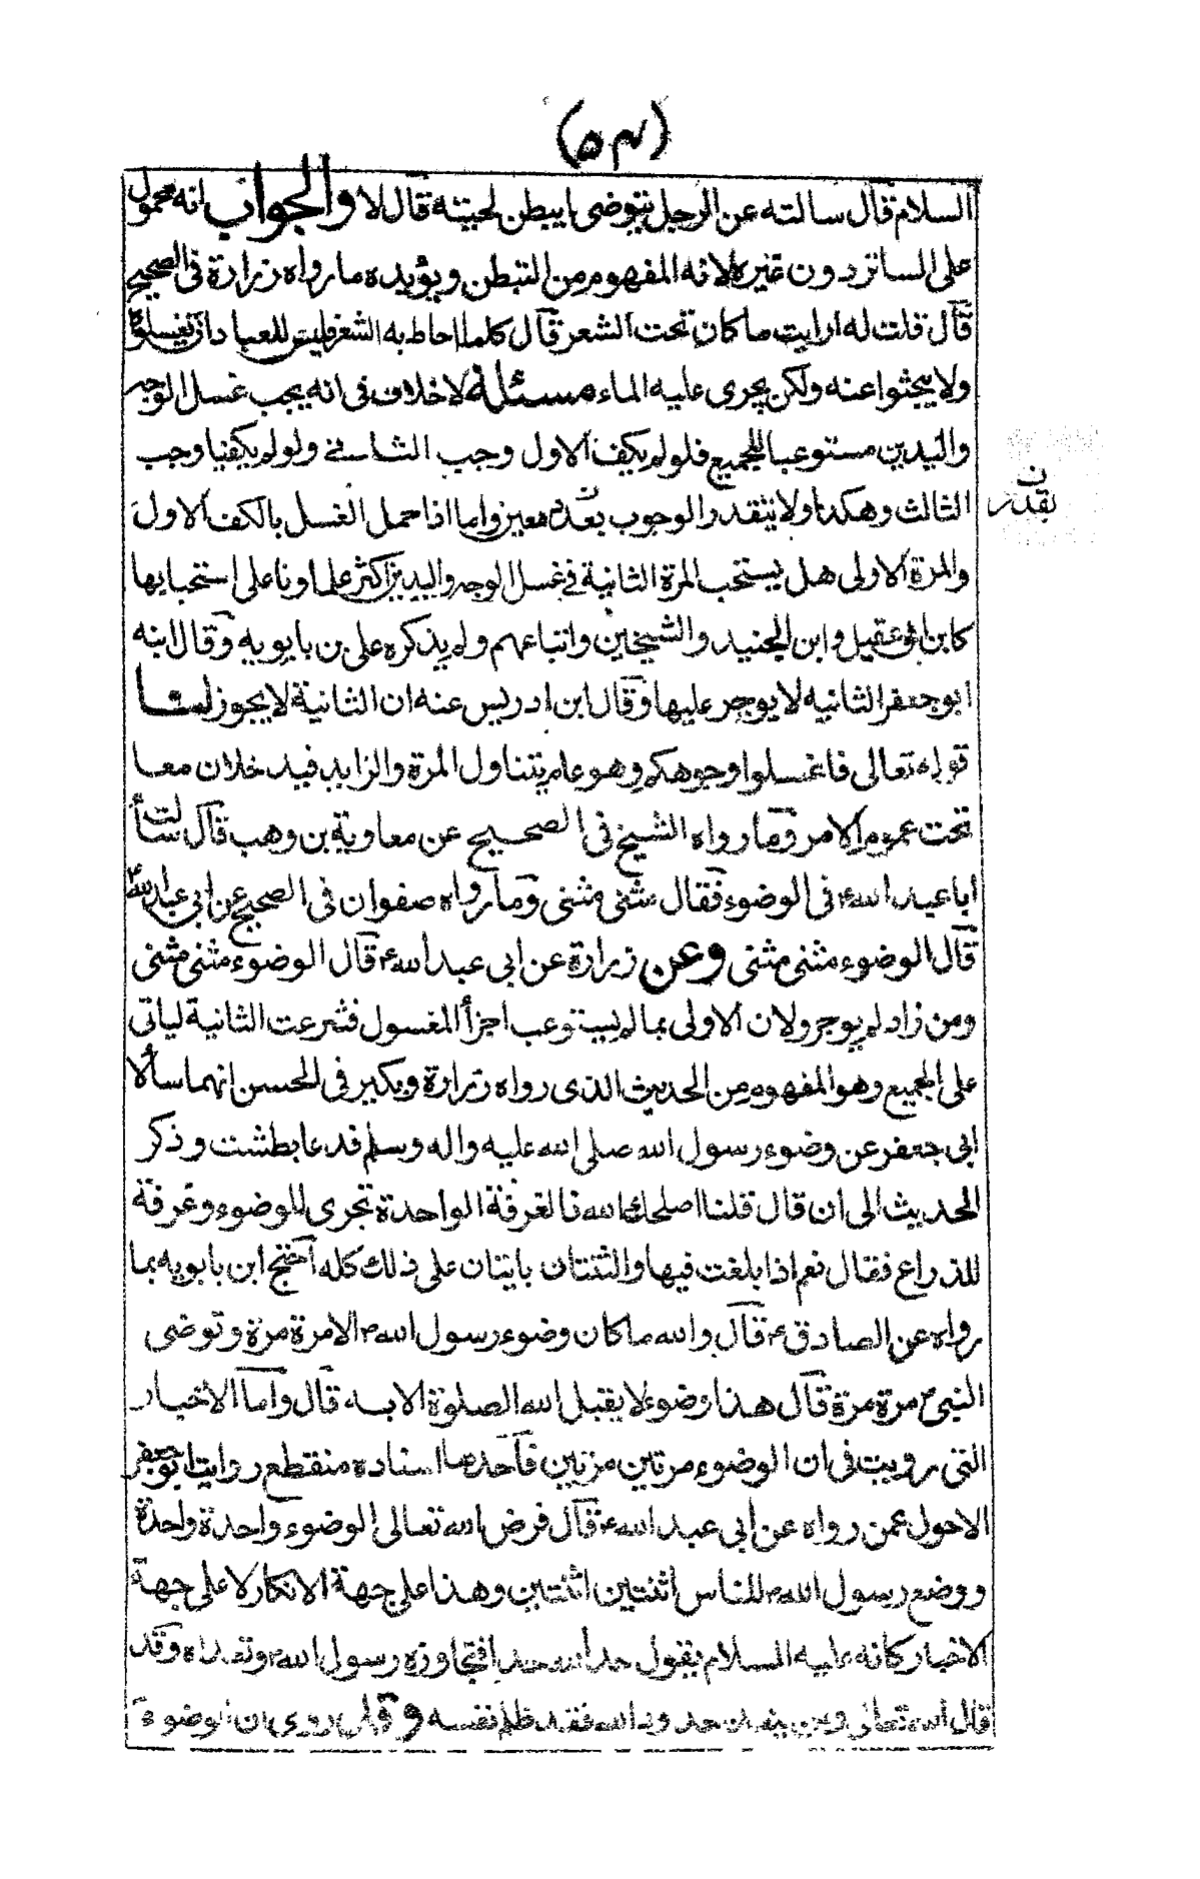 (٥٣)
السلام قال سالته عن الرجل يتوضى ايبطن لحيته قال لا والجواب انه محمول
على الساتر دون غيره لانه المفهوم من التبطن ويؤيده ما رواه زرارة فى الصحيح
قال قلت له ارايت ما كان تحت الشعر قال كلما احاط به الشعر فليس للعباد ان يغسلوه
ولا يبحثوا عنه ولكن يجرى عليه الماء مسئلة لا خلاف فى انه يجب غسل الوجه
واليدين مستوعبا للجميع فلو لم يكف الاول وجب الثانى ولو لم يكفيا وجب
الثالث وهكذا ولا يتقدر الوجوب بعدد معين واما اذا حصل الغسل بالكف الاول
بقدر ن
والمرة الاولى هل يستحب المرة الثانية فى غسل الوجه واليدين اكثر علماونا على استحبابها
كابن ابى عقيل وابن الجنيد والشيخين واتباعهم ولم يذكره على بن بابويه وقال ابنه
ابو جعفر الثانيه لا يوجر عليها وقال ابن ادريس عنه ان الثانية لا يجوز لنا
قوله تعالى فاغسلوا وجوهكم وهو عام يتناول المرة والزايد فيدخلان معا
تحت عموم الامر وما رواه الشيخ فى الصحيح عن معاوية بن وهب قال سألت
ابا عبد الله ع فى الوضوء فقال مثنى مثنى وما رواه صفوان فى الصحيح عن ابى عبد الله ع
قال الوضوء مثنى مثنى وعن زرارة عن ابى عبد الله ع قال الوضوء مثنى مثنى
ومن زاد لم يوجر ولان الاولى بما لم يستوعب اجزأ المغسول فشرعت الثانية لياتى
على الجميع وهو المفهوم من الحديث الذى رواه زرارة وبكير فى الحسن انهما سألا
ابى جعفر عن وضوء رسول الله صلى الله عليه واله وسلم فدعا بطشت وذكر
الحديث الى ان قال قلنا اصلحك الله فالغرفة الواحدة تجرى للوضوء وغرفة
للذراع فقال نعم اذا بلغت فيها والثنتان ياتيان على ذلك كله احتج ابن بابويه بما
رواه عن الصادق ع قال والله ما كان وضوء رسول الله ص الا مرة مرة وتوضى
النبى ص مرة مرة قال هذا وضوء لا يقبل الله الصلوة الا به قال واما الاخبار
التى رويت فى ان الوضوء مرتين مرتين فاحدها اسناده منقطع رواية ابو جعفر
الاحول عمن رواه عن ابى عبد الله ع قال فرض الله تعالى الوضوء واحدة واحدة
ووضع رسول الله ص للناس اثنتين اثنتين وهذا على جهة الانكار لا على جهة
الاخبار كانه عليه السلام يقول حد الله حدا فتجاوزه رسول الله ص وتعداه وقد
قال الله تعالى ومن يتعد حدود الله فقد ظلم نفسه وقد روى ان الوضوء